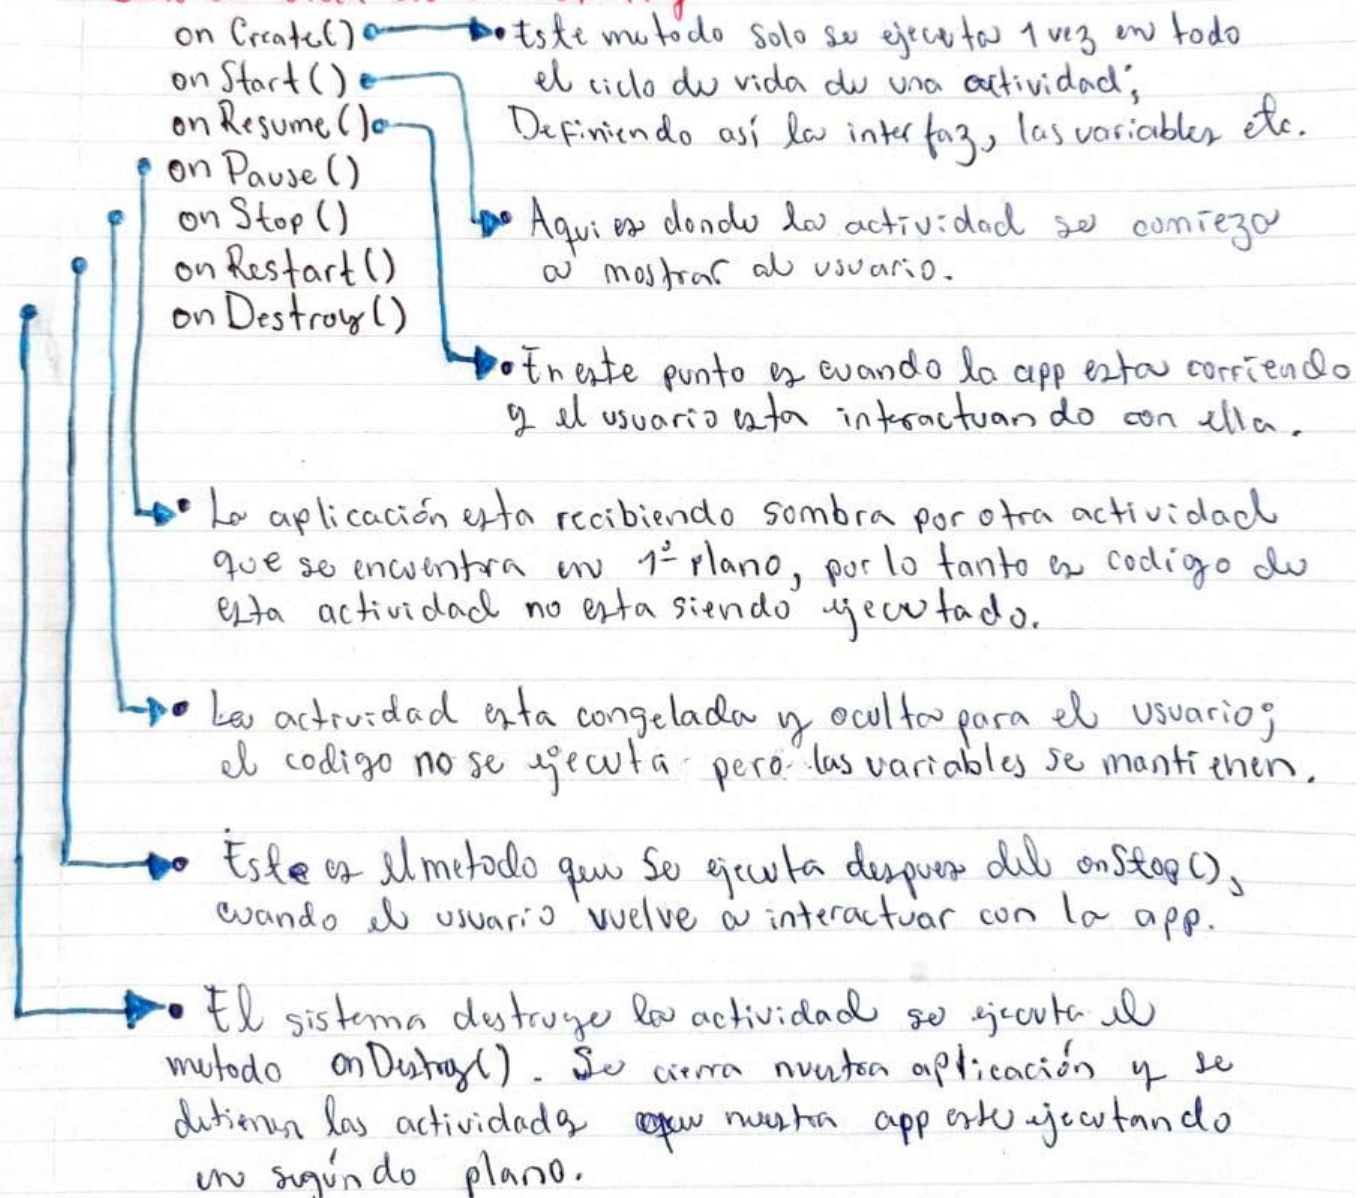 on Create()
on Start()
on Resume()
on Pause()
on Stop()
on Restart()
on Destroy()
• Este metodo solo se ejecuta 1 vez en todo
el ciclo de vida de una actividad;
Definiendo así la interfaz, las variables etc.
• Aqui es donde la actividad se comieza
a mostrar al usuario.
• En este punto es cuando la app esta corriendo
y el usuario esta interactuando con ella.
• La aplicación esta recibiendo sombra por otra actividad
que se encuentra en 1º plano, por lo tanto es codigo de
esta actividad no esta siendo ejecutado.
• La actividad esta congelada y oculta para el usuario;
el codigo no se ejecuta pero las variables se mantienen.
• Este es el metodo que se ejecuta despues del onStop(),
cuando el usuario vuelve a interactuar con la app.
• El sistema destruye la actividad se ejecuta el
metodo onDestroy(). Se cierra nuestra aplicación y se
detienen las actividades que nuestra app este ejecutando
en según do plano.